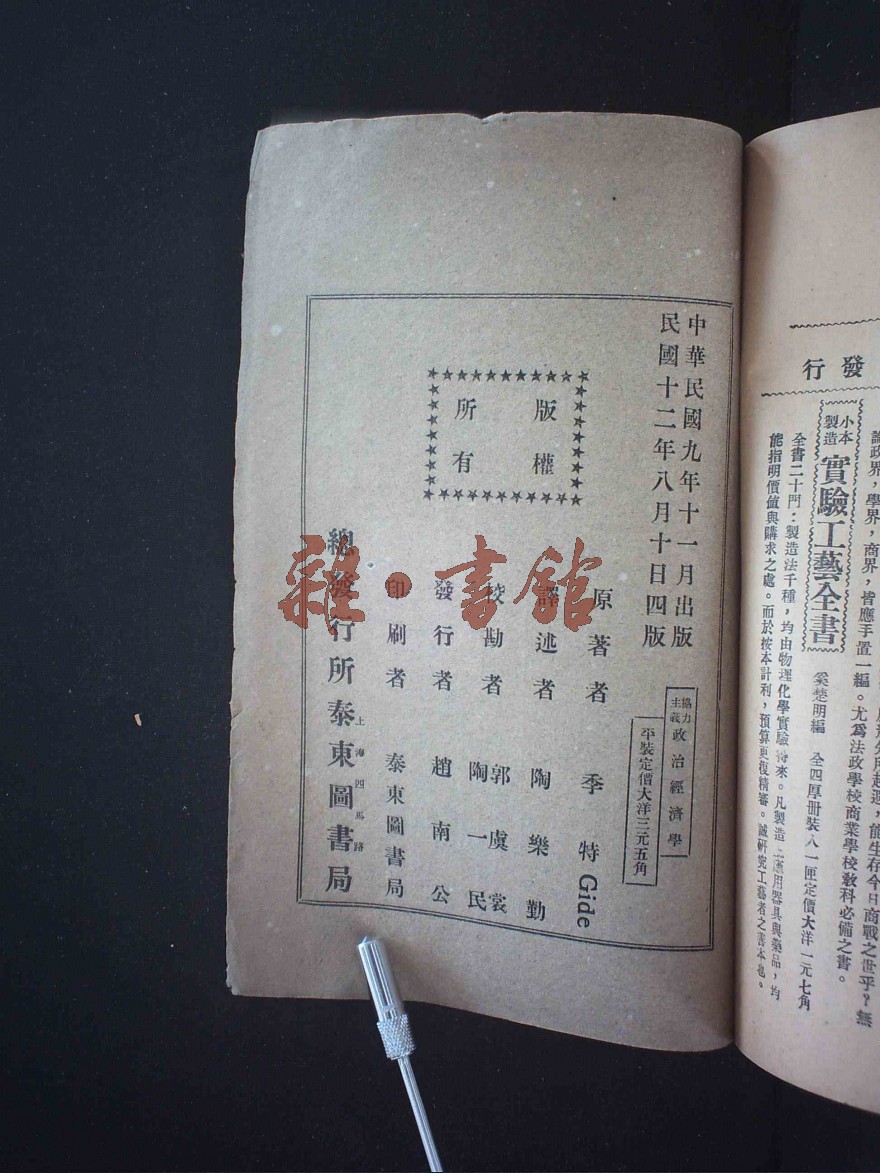 中華民國九年十一月出版
民國十二年八月十日四版
版權
所有
協力
主義
政治經濟學
平裝定價大洋三元五角
原著者 季特Gide
譯述者 陶樂勤
校勘者 郭虞裳
陶一民
發行者 趙南公
印刷者 泰東圖書局
上海四馬路
總發行所泰東圖書局
雜·書館
發行
論政界，學界，商界，皆應手置一編。尤爲法政學校商業學校敎科必備之書。
能生存今日商戰之世乎？無
小本
製造
實驗工藝全書
奚楚明編 全四厚册裝入一匣定價大洋一元七角
全書二十門：製造法千種，均由物理化學實驗得來。凡製造
應用器具與藥品，均
能指明價値與購求之處。而於按本計利，預算更復精審。誠研究工藝者之善本也。